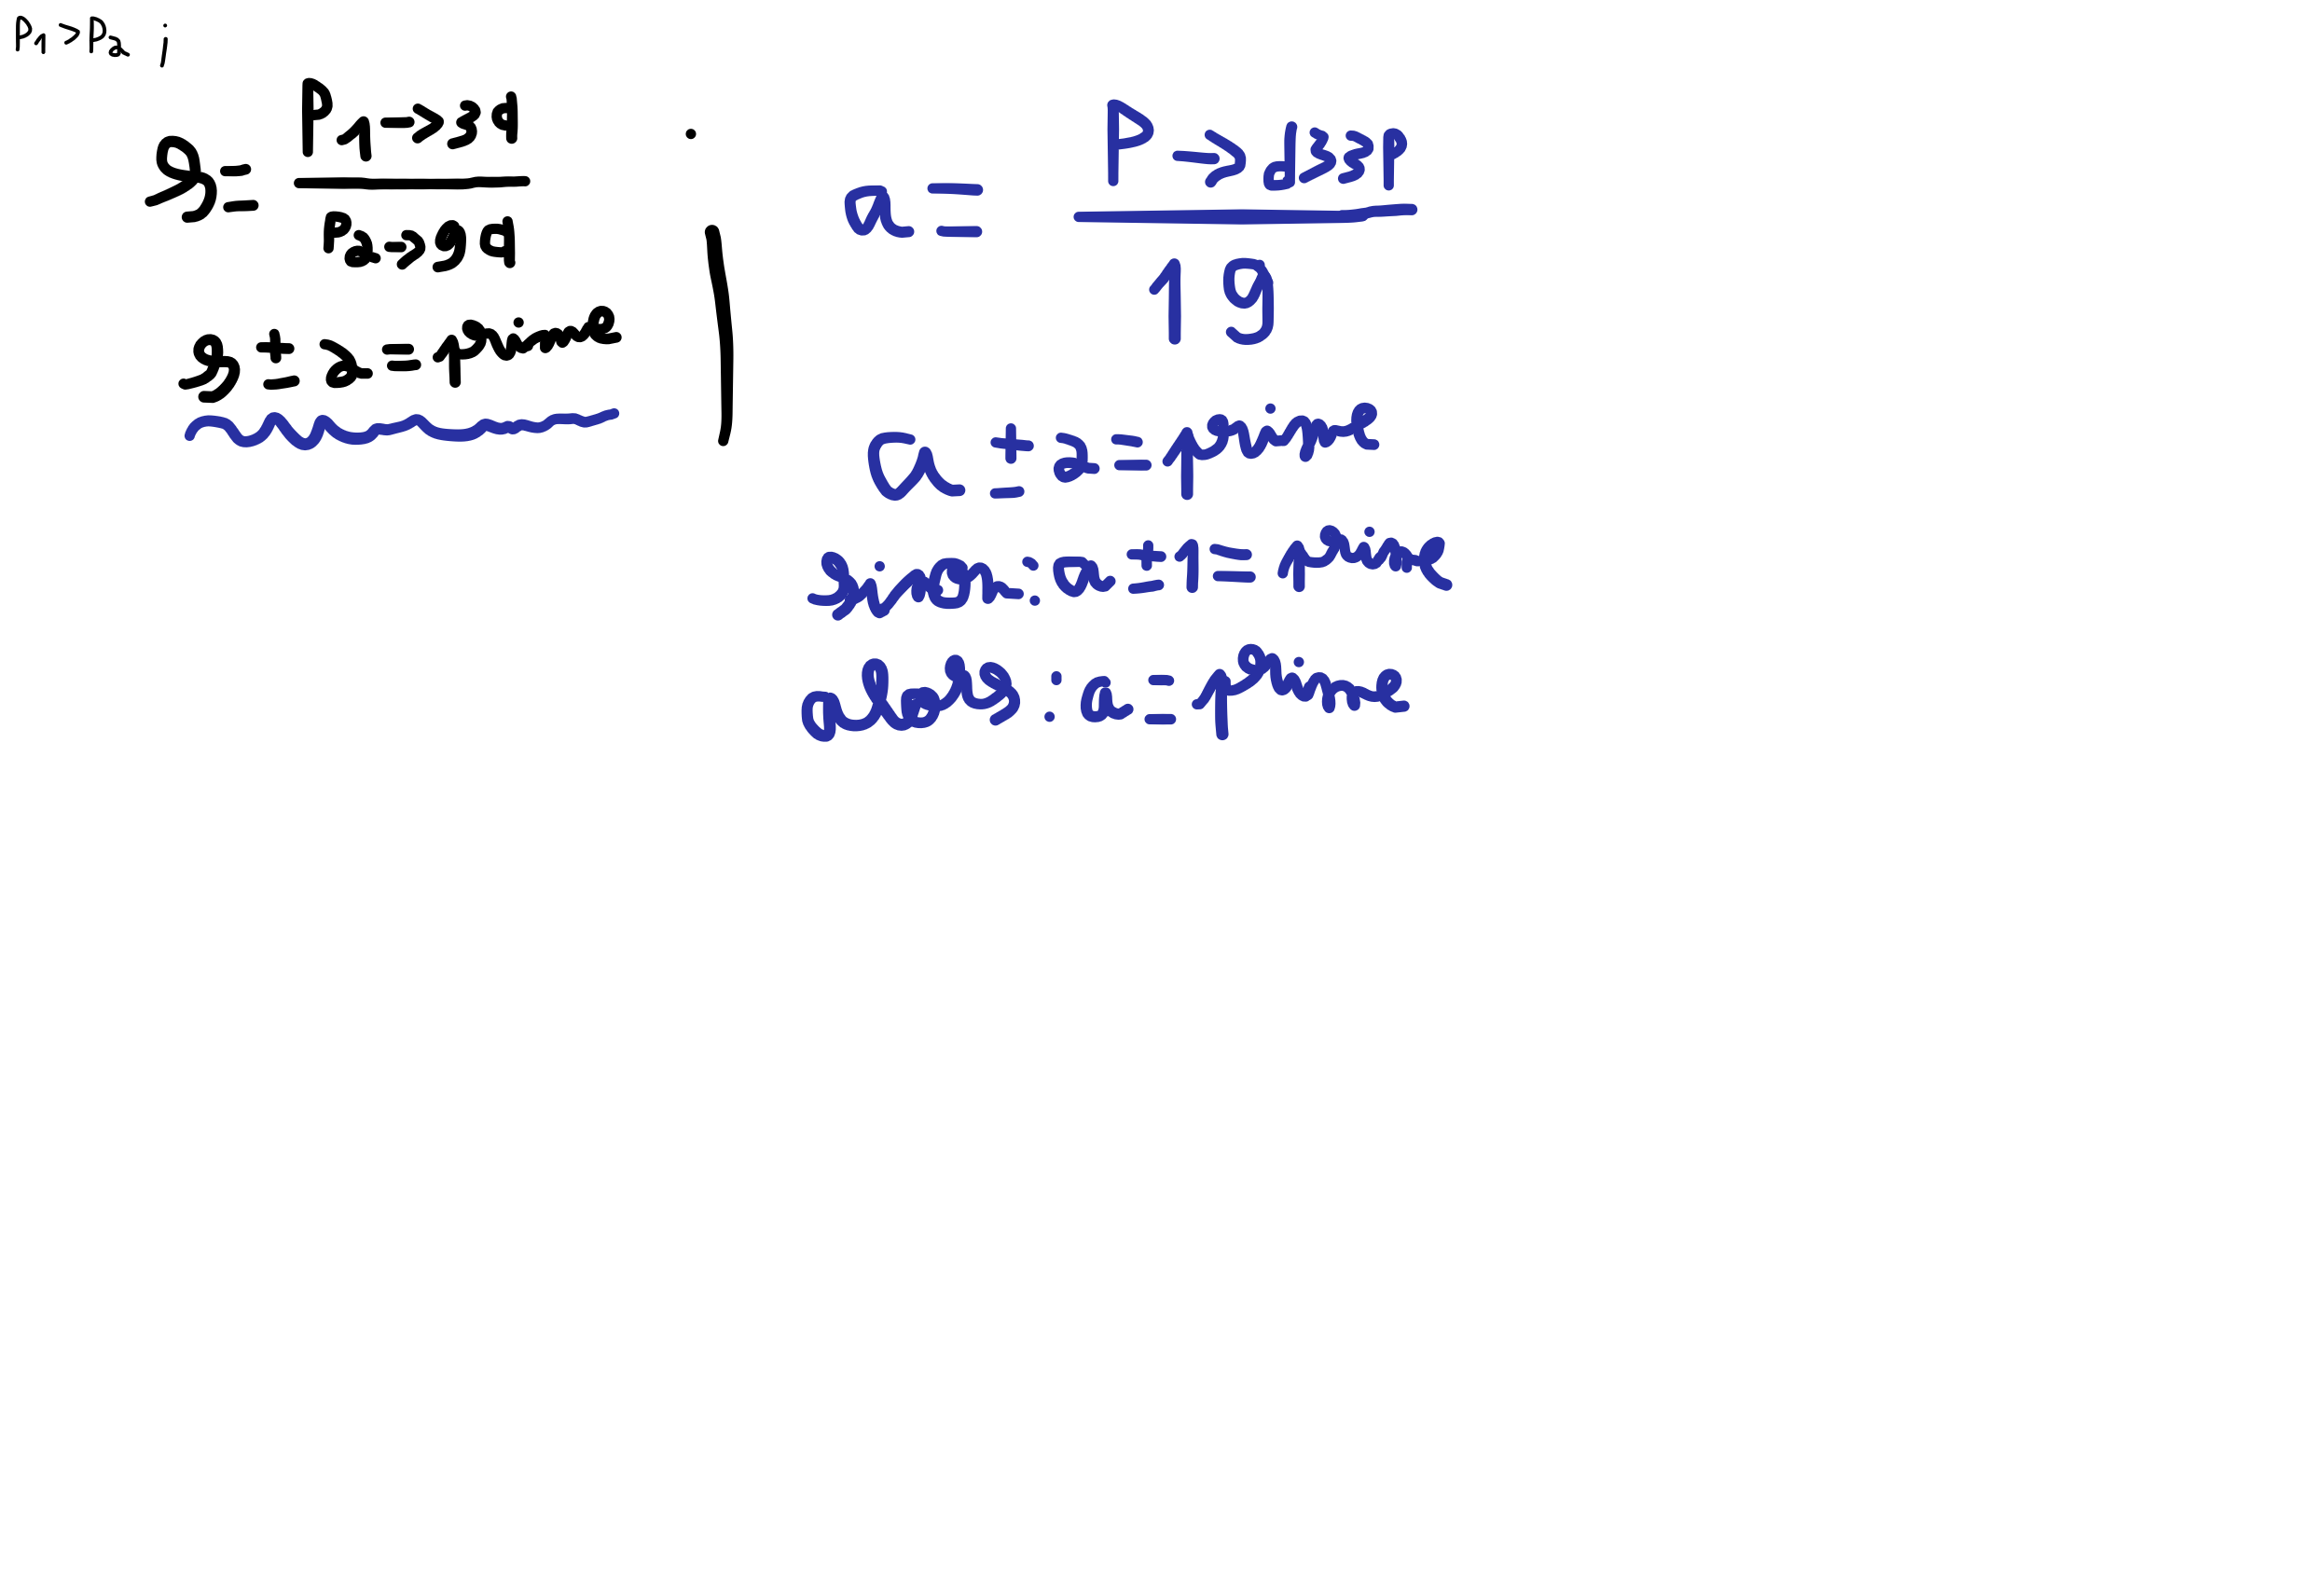 P1 > P2 ;
S = P1 -> 3d / P2 -> 9d
S ± 2 = prime
a = P -> d>33P / 19
a ± 2 = prime
sinon : a ± 1 = prime
alors : a = prime